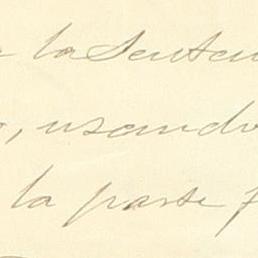 la Senten
, usando
la parte f